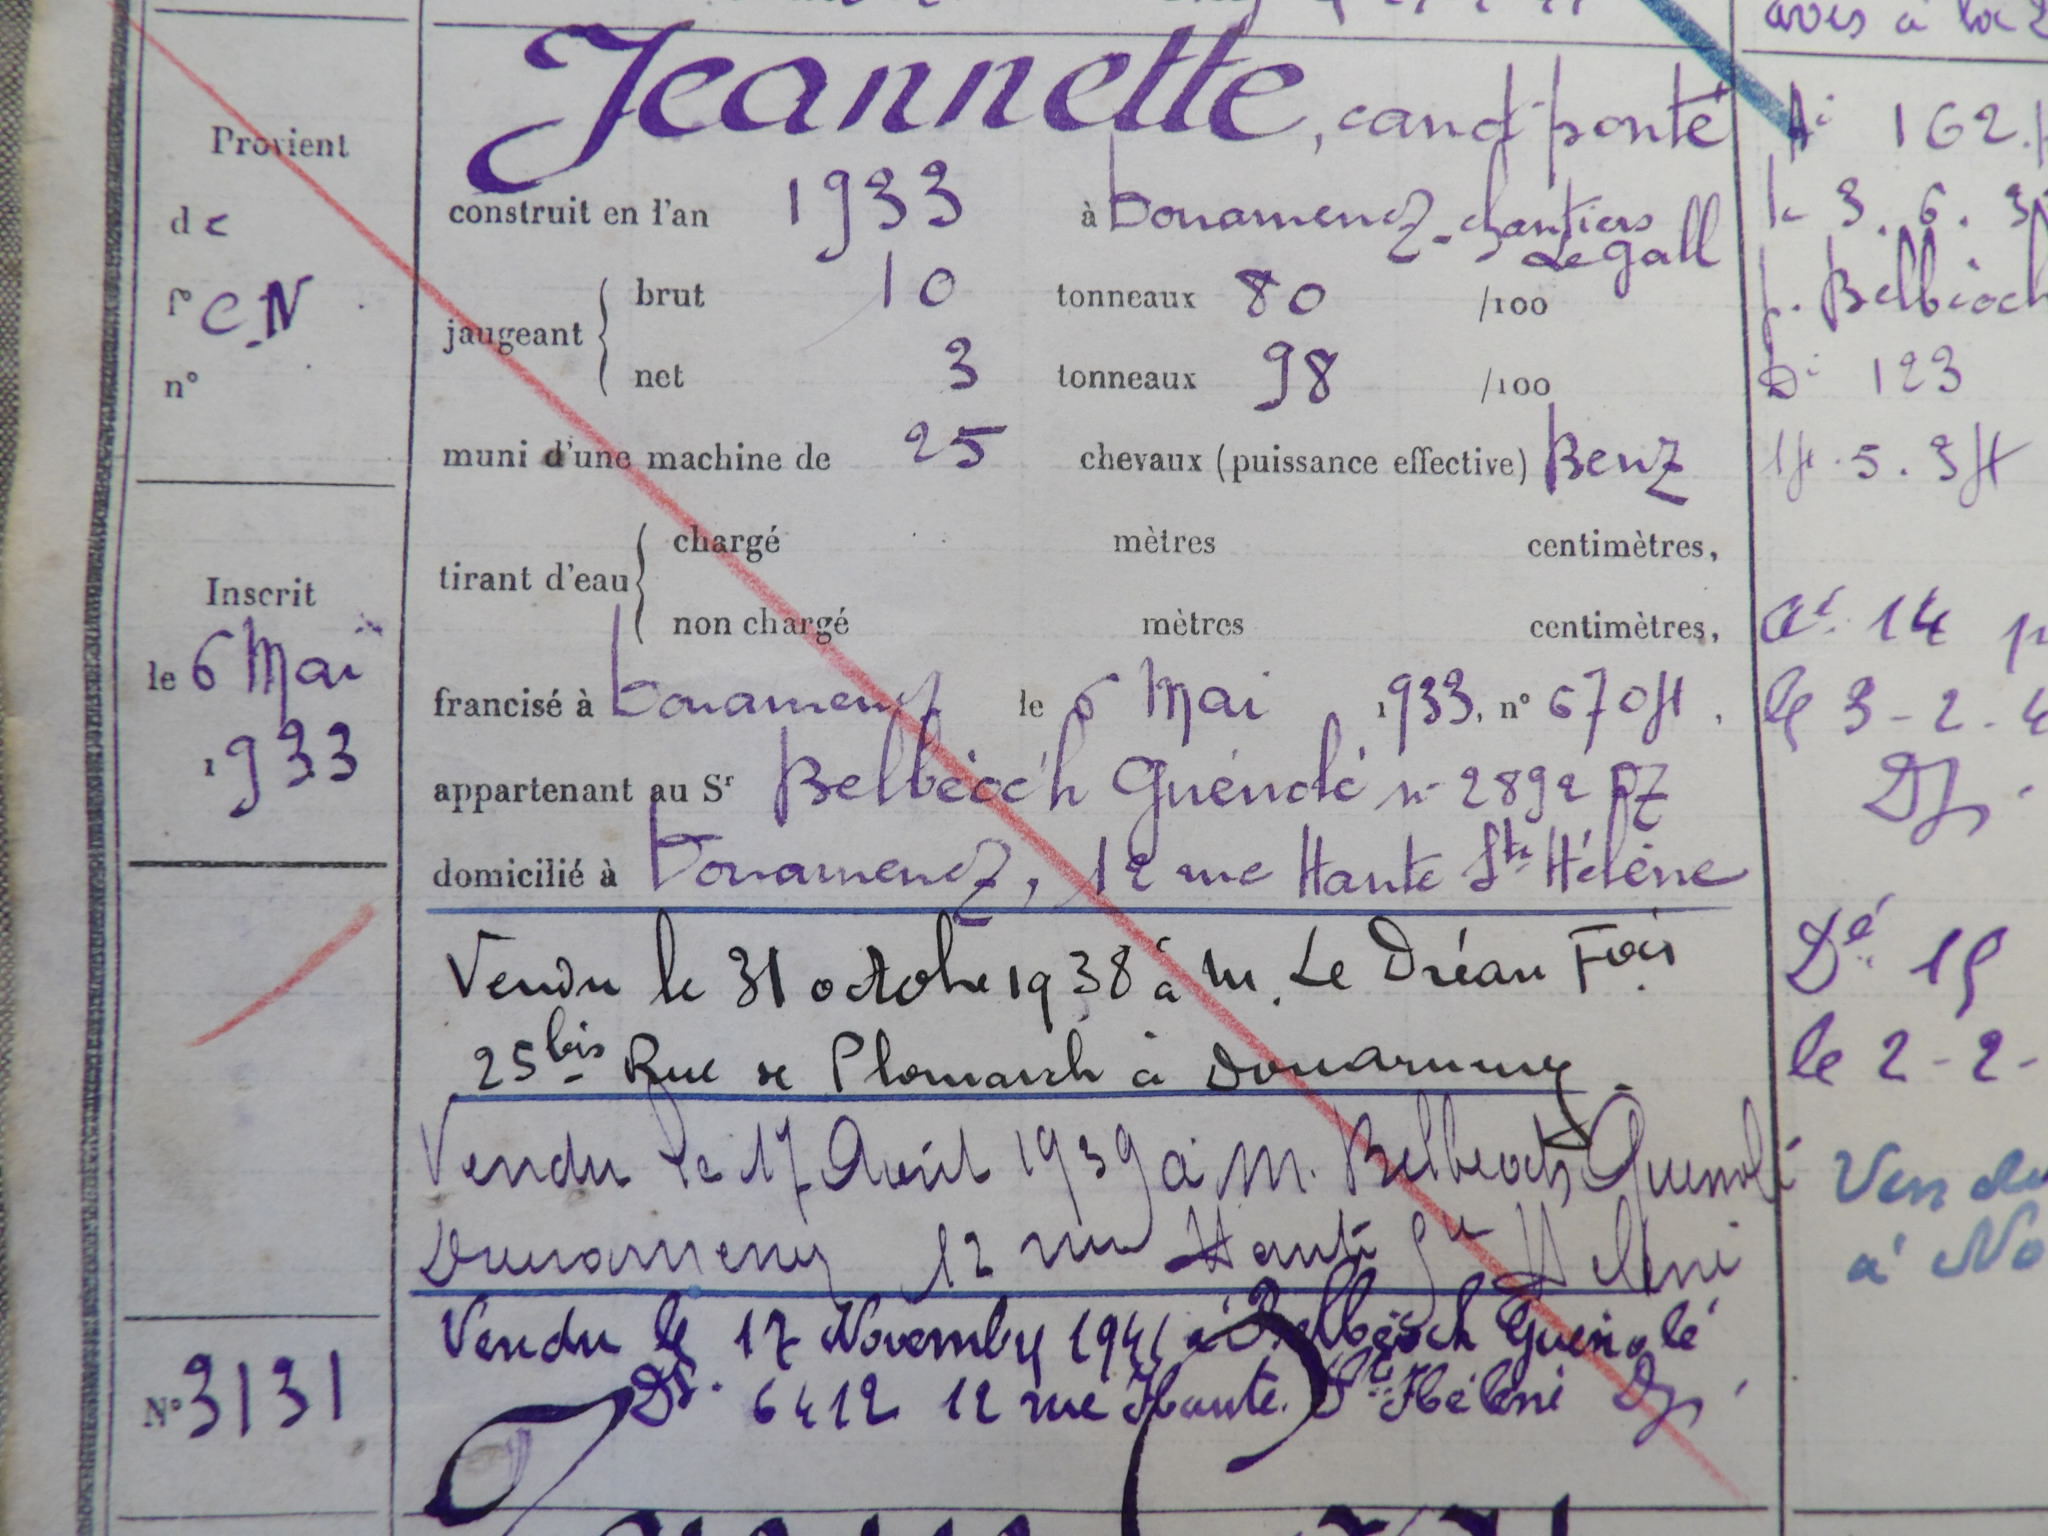 avis à la
Jeannette, canot ponté
Provient
de
f° C.N
n°
construit en l'an 1933 à Douarnenez - chantiers
Le Gall
jaugeant { brut 10 tonneaux 80 /100
net 3 tonneaux 98 /100
muni d'une machine de 25 chevaux (puissance effective) Benz
tirant d'eau { chargé mètres centimètres,
non chargé mètres centimètres,
Inscrit
le 6 Mai
1933
francisé à Douarnenez le 6 Mai 1933, n° 6704.
appartenant au Sr Belbéoc'h Guénolé n° 2892 DZ
domicilié à Douarnenez, 12 rue Haute Ste Hélène
Vendu le 31 octobre 1938 à M. Le Dréau Fois
25 bis Rue de Plomarch à Douarnenez.
Vendu le 17 Avril 1939 à M. Belbeoch Guenolé
Douarnenez 12 rue Haute Ste Hélène
Vendu le 17 Novembre 1941 à Belbéoch Guénolé
Dz. 6412 12 rue Haute Ste Hélène Dz.
N° 3131
At 162
le 3.6.3
p. Belbéoch
Dt 123
14.5.34
at 14
le 3-2-4
Dz.
Dé 15
le 2-2-
Vendu
à No